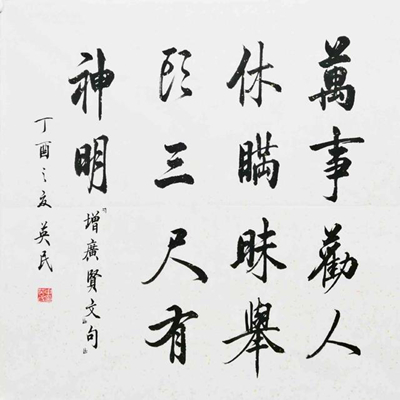 萬事勸人
休瞞昧舉
頭三尺有
神明
「增廣賢文」句
丁酉之夏英民